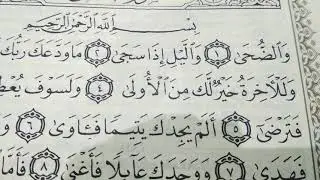 بِسْمِ ٱللَّهِ ٱلرَّحْمَٰنِ ٱلرَّحِيمِ
وَٱلضُّحَىٰ ١ وَٱلَّيْلِ إِذَا سَجَىٰ ٢ مَا وَدَّعَكَ رَبُّكَ
وَلَلْآخِرَةُ خَيْرٌ لَّكَ مِنَ ٱلْأُولَىٰ ٤ وَلَسَوْفَ
فَتَرْضَىٰ ٥ أَلَمْ يَجِدْكَ يَتِيمًا فَـَٔاوَىٰ ٦
فَهَدَىٰ ٧ وَوَجَدَكَ عَآئِلًا فَأَغْنَىٰ ٨ فَأَمَّا